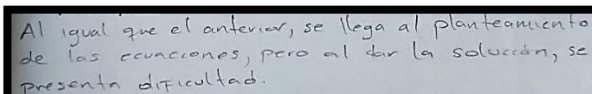 Al igual que el anterior, se llega al planteamiento
de las ecuaciones, pero al dar la solución, se
presenta dificultad.